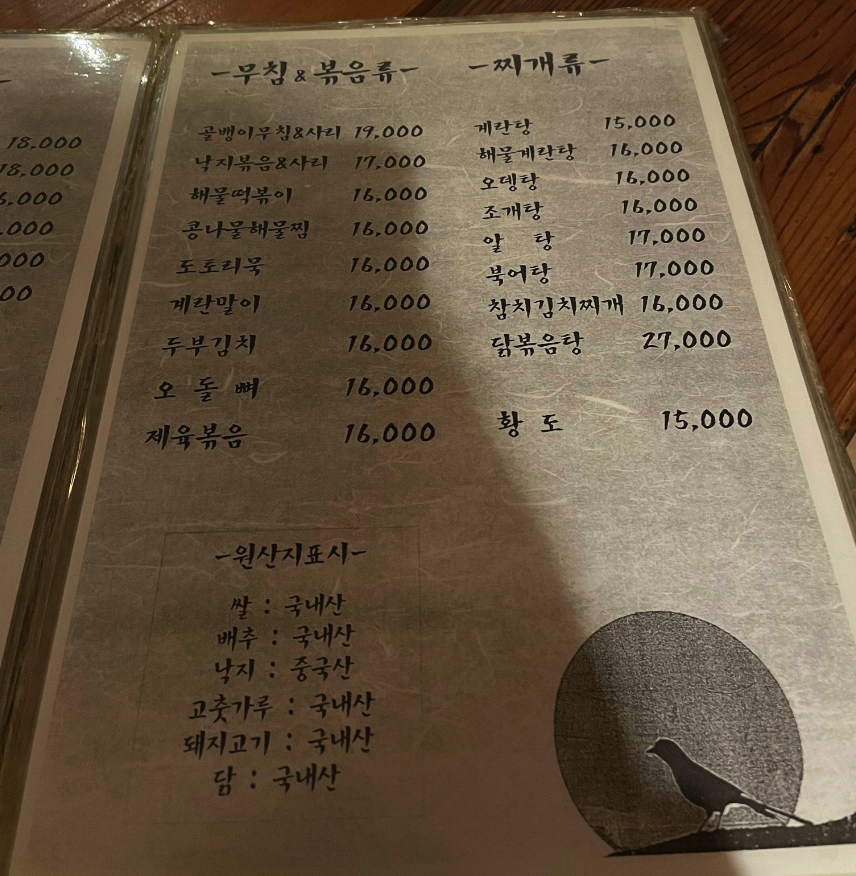 18,000
18,000
-무침 & 볶음류-
골뱅이무침&사리 19,000
낙지볶음&사리 17,000
해물떡볶이 16,000
콩나물해물찜 16,000
도토리묵 16,000
계란말이 16,000
두부김치 16,000
오 돌 뼈 16,000
제육볶음 16,000
-찌개류-
계란탕 15,000
해물계란탕 16,000
오뎅탕 16,000
조개탕 16,000
알 탕 17,000
북어탕 17,000
참치김치찌개 16,000
닭볶음탕 27,000
황 도 15,000
-원산지표시-
쌀 : 국내산
배추 : 국내산
낙지 : 중국산
고춧가루 : 국내산
돼지고기 : 국내산
닭 : 국내산